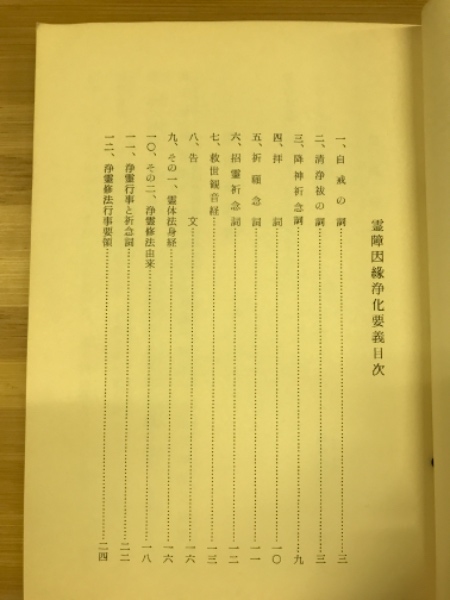 霊障因縁浄化要義目次
一、自戒の詞……三
二、清浄祓の詞……三
三、降神祈念詞……九
四、拝 詞……一〇
五、祈願念詞……一一
六、招霊祈念詞……一二
七、救世観音経……一三
八、告 文……一六
九、その一、霊体法身経……一六
一〇、その二、浄霊修法由来……一八
一一、浄霊行事と祈念詞……二二
一二、浄霊修法行事要領……二四